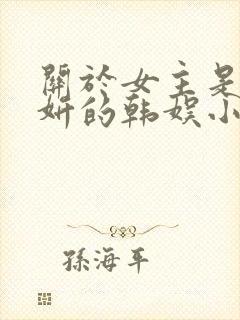 關於女主是
妍的韓娛小
孫海平